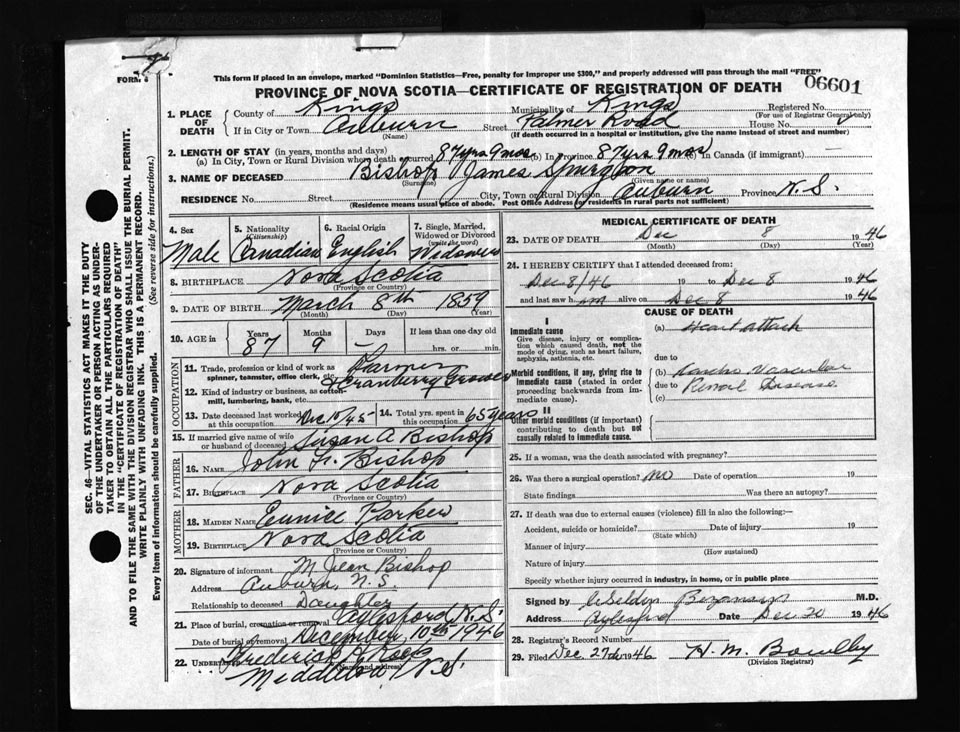 FORM 6
This form if placed in an envelope, marked "Dominion Statistics—Free, penalty for improper use $300," and properly addressed will pass through the mail "FREE"
06601
PROVINCE OF NOVA SCOTIA—CERTIFICATE OF REGISTRATION OF DEATH
1. PLACE OF DEATH { County of Kings Municipality of Kings Registered No. (For use of Registrar General only)
If in City or Town Auburn (Name) Street Palmer Road House No.
(If death occurred in a hospital or institution, give the name instead of street and number)
2. LENGTH OF STAY (in years, months and days)
(a) In City, Town or Rural Division where death occurred 87yrs 9mos (b) In Province 87yrs 9mos (c) In Canada (if immigrant) —
3. NAME OF DECEASED Bishop James Spurgeon
(Surname) (Given name or names)
RESIDENCE No. Street City, Town or Rural Division Auburn Province N.S.
(Residence means usual place of abode. Post Office Address for residents in rural parts not sufficient)
4. Sex Male
5. Nationality (Citizenship) Canadian
6. Racial Origin English
7. Single, Married, Widowed or Divorced (write the word) Widower
8. BIRTHPLACE Nova Scotia
(Province or Country)
9. DATE OF BIRTH March 8th 1859
(Month) (Day) (Year)
10. AGE in Years 87 Months 9 Days — If less than one day old hrs. or min.
OCCUPATION
11. Trade, profession or kind of work as spinner, teamster, office clerk, etc. Farmer
& Cranberry Grower
12. Kind of industry or business, as cotton-mill, lumbering, bank, etc.
13. Date deceased last worked at this occupation Dec 15/45
14. Total yrs. spent in this occupation 65 years
15. If married give name of wife or husband of deceased Susan A Bishop
FATHER
16. NAME John Bishop
17. BIRTHPLACE Nova Scotia
(Province or Country)
MOTHER
18. MAIDEN NAME Eunice Parker
19. BIRTHPLACE Nova Scotia
(Province or Country)
20. Signature of informant M Jean Bishop
Address Auburn, N.S.
Relationship to deceased Daughter
21. Place of burial, cremation or removal Aylesford N.S.
Date of burial or removal December 10th 1946
22. UNDERTAKER Frederick
(Name and address)
Middleton, N.S.
MEDICAL CERTIFICATE OF DEATH
23. DATE OF DEATH Dec 8 1946
(Month) (Day) (Year)
24. I HEREBY CERTIFY that I attended deceased from:
Dec 8/46 19 to Dec 8 1946
and last saw him alive on Dec 8 1946
CAUSE OF DEATH
I
Immediate cause
Give disease, injury or complication which caused death, not the mode of dying, such as heart failure, asphyxia, asthenia, etc.
(a) Heart attack
due to
Morbid conditions, if any, giving rise to immediate cause (stated in order proceeding backwards from immediate cause).
(b) Vascular
due to Renal Disease
(c)
II
Other morbid conditions (if important) contributing to death but not causally related to immediate cause.
25. If a woman, was the death associated with pregnancy?
26. Was there a surgical operation? no Date of operation 19
State findings Was there an autopsy?
27. If death was due to external causes (violence) fill in also the following:—
Accident, suicide or homicide? Date of injury 19
(State which)
Manner of injury
(How sustained)
Nature of injury
Specify whether injury occurred in industry, in home, or in public place
Signed by M.D.
Address Aylesford Date Dec 20 1946
28. Registrar's Record Number
29. Filed Dec 27th 1946 H. M. Bowlby
(Division Registrar)
SEC. 46—VITAL STATISTICS ACT MAKES IT THE DUTY
OF THE UNDERTAKER OR PERSON ACTING AS UNDER-
TAKER TO OBTAIN ALL THE PARTICULARS REQUIRED
IN THE "CERTIFICATE OF REGISTRATION OF DEATH"
AND TO FILE THE SAME WITH THE DIVISION REGISTRAR WHO SHALL ISSUE THE BURIAL PERMIT.
WRITE PLAINLY WITH UNFADING INK. THIS IS A PERMANENT RECORD.
Every item of information should be carefully supplied. (See reverse side for instructions.)